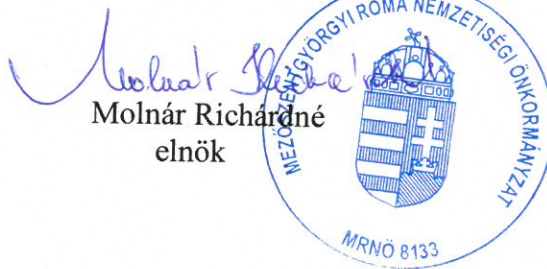 Molnár Richárdné
Molnár Richárdné
elnök
MEZŐSZENTGYÖRGYI ROMA NEMZETISÉGI ÖNKORMÁNYZAT
MRNÖ 8133